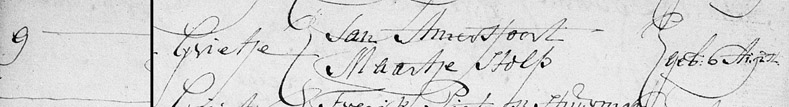 9 Grietje Jan Amersfoort
Maartje Stolp geb: 6 Aug: